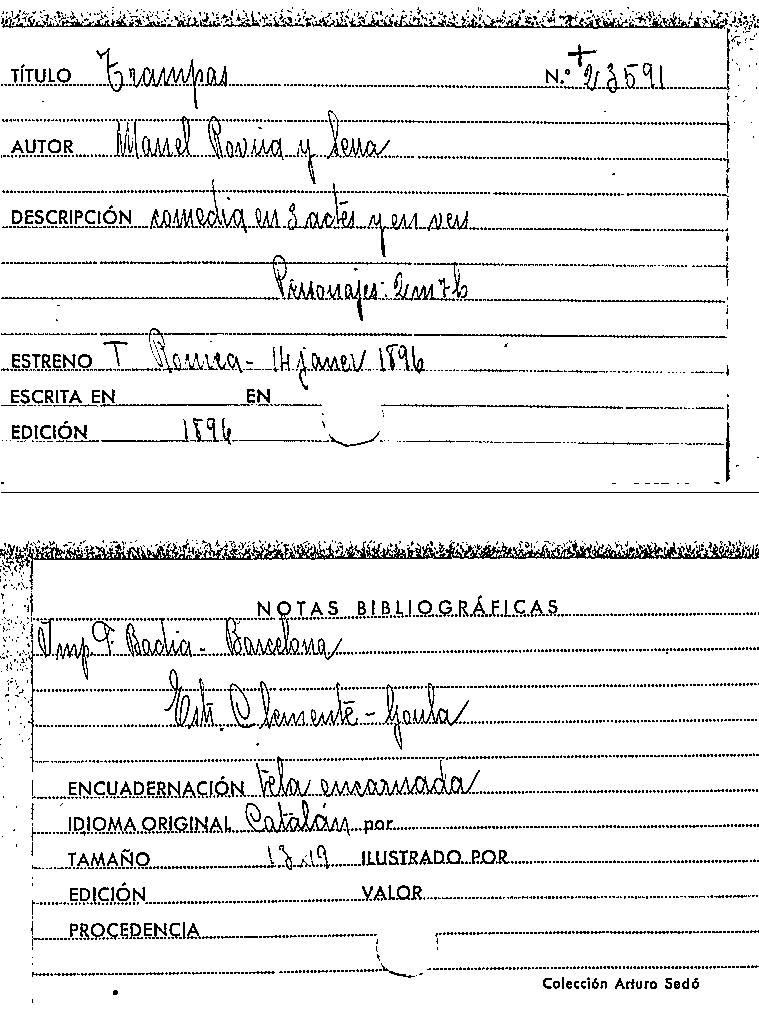 TÍTULO Trampas N.º 23591
AUTOR Manel Rovira y Serra
DESCRIPCIÓN comedia en 3 actes y en vers
Personajes: 2m 7h
ESTRENO T Romea - 14 janer 1896
ESCRITA EN EN
EDICIÓN 1896
NOTAS BIBLIOGRÁFICAS
Imp. F. Badia - Barcelona
Estr. Clemente - Goula
ENCUADERNACIÓN tela encarnada
IDIOMA ORIGINAL Catalán por
TAMAÑO 13 x 19 ILUSTRADO POR
EDICIÓN VALOR
PROCEDENCIA
Colección Arturo Sedó